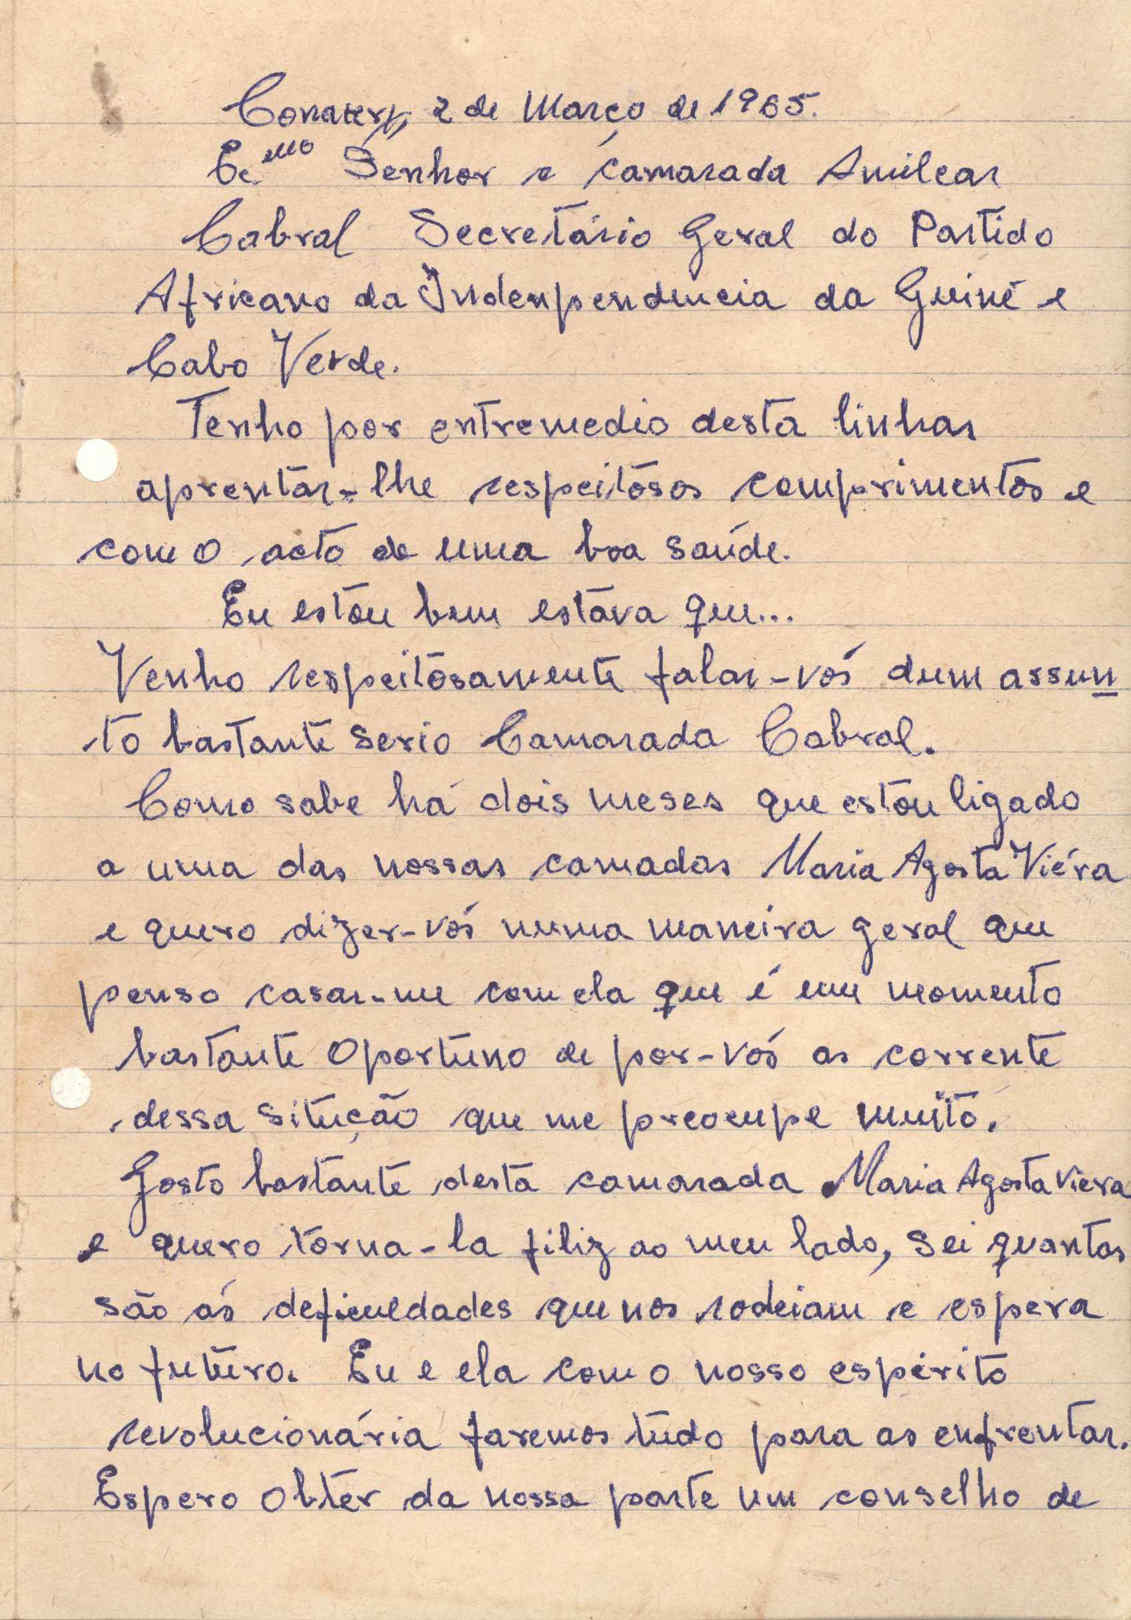 Conakry, 2 de Março de 1965.
Ec.emo Senhor e camarada Amilcar
Cabral Secretário Geral do Partido
Africano da Indenpendencia da Guiné e
Cabo Verde.
Tenho por entremedio desta linhas
aprentar-lhe respeitósos comprimentos e
com o acto de uma boa saúde.
Eu estou bem estava que...
Venho respeitósamente falar-vós dum assun
to bastante serio Camarada Cabral.
Como sabe há dois meses que estou ligado
a uma das nossas camadas Maria Agosta Viéra
e quero dizer-vós numa maneira geral que
penso casar-me com ela que é um momento
bastante oportuno de por-vós as corrente
dessa situção que me preocupe muito.
Gosto bastante desta camarada Maria Agosta Viera
e quero torna-la filiz ao meu lado, sei quantas
são ás deficuldades que nos rodeiam e espera
no futuro. Eu e ela com o nosso espirito
revolucionária faremos tudo para as enfrentar.
Espero obter da nossa parte um conselho de